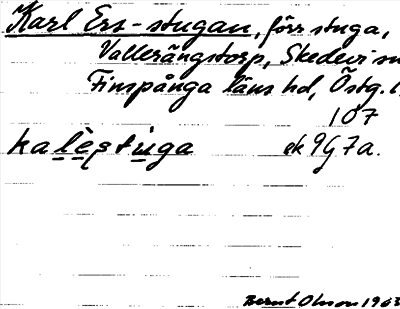 Karl Ers-stugan, förr stuga,
Vallerängstorp, Skedevi sn
Finspånga läns hd, Östg. l.
107
ha lèstuga ek 9G7a.
Bernt Olsson 1963